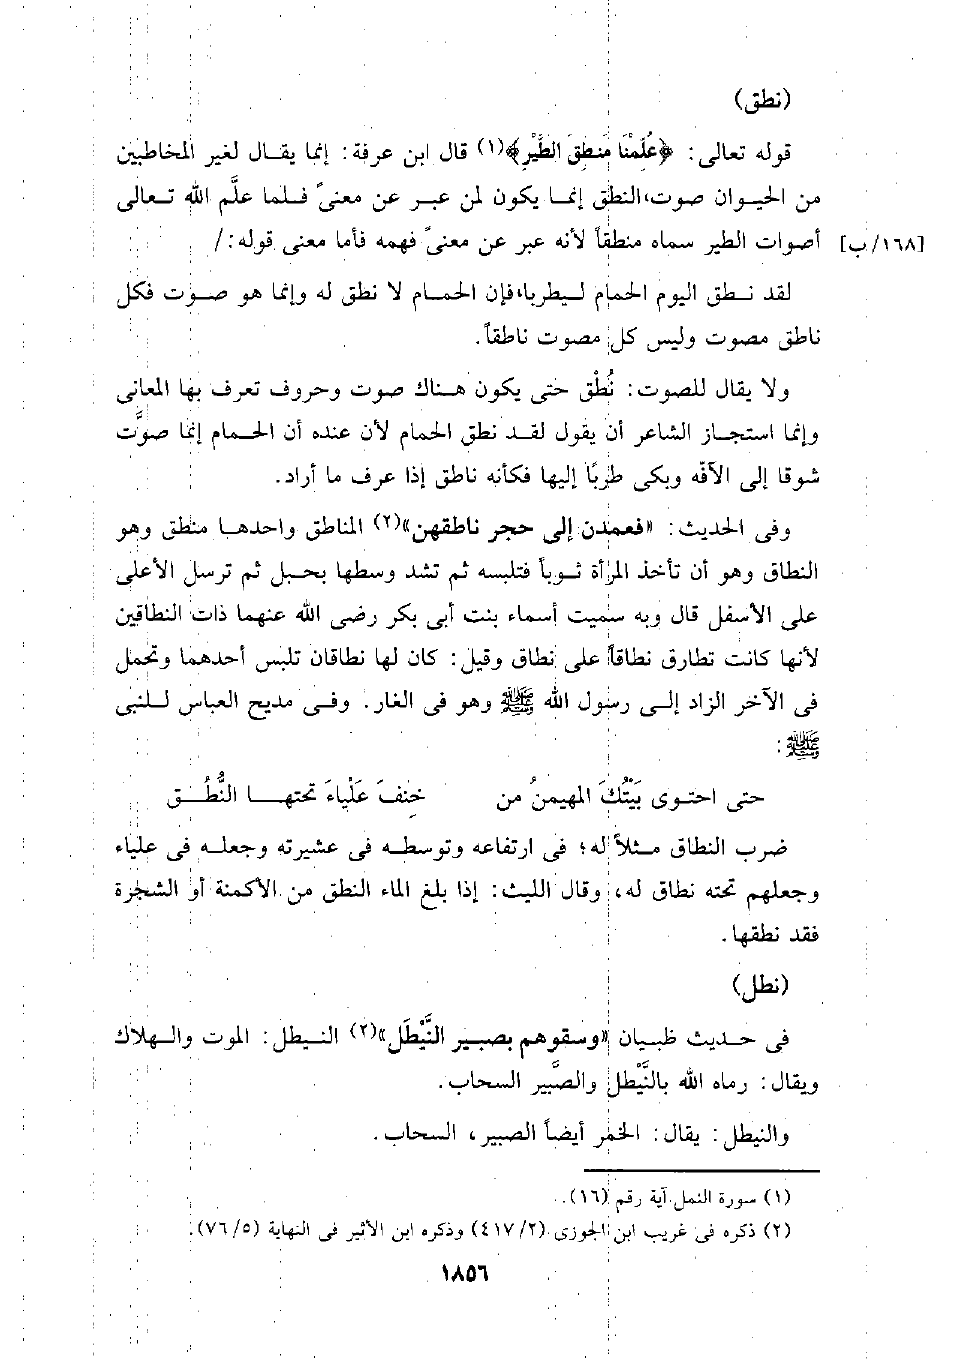 (نطق)
قوله تعالى: ﴿عُلِّمْنَا مَنطِقَ الطَّيْرِ﴾(١) قال ابن عرفة: إنما يقال لغير المخاطبين
من الحيوان صوت، النطق إنما يكون لمن عبر عن معنىً فلما علَّم الله تعالى
[١٦٨/ب] أصوات الطير سماه منطقاً لأنه عبر عن معنىً فهمه فأما معنى قوله:/
لقد نطق اليوم الحمام ليطربا، فإن الحمام لا نطق له وإنما هو صوت فكل
ناطق مصوت وليس كل مصوت ناطقاً.
ولا يقال للصوت: نُطْق حتى يكون هناك صوت وحروف تعرف بها المعانى
وإنما استجاز الشاعر أن يقول لقد نطق الحمام لأن عنده أن الحمام إنما صوَّت
شوقا إلى الآفّه وبكى طربًا إليها فكأنه ناطق إذا عرف ما أراد.
وفى الحديث: «فعمدن إلى حجر ناطقهن»(٢) المناطق واحدها منطق وهو
النطاق وهو أن تأخذ المرأة ثوباً فتلبسه ثم تشد وسطها بحبل ثم ترسل الأعلى
على الأسفل قال وبه سميت أسماء بنت أبى بكر رضى الله عنهما ذات النطاقين
لأنها كانت تطارق نطاقاً على نطاق وقيل: كان لها نطاقان تلبس أحدهما وتحمل
فى الآخر الزاد إلى رسول الله ﷺ وهو فى الغار. وفى مديح العباس للنبى
ﷺ:
حتى احتوى بَيْتُكَ المهيمنُ من خِنفَ عَلْياءَ تحتها النُّطُق
ضرب النطاق مثلاً له؛ فى ارتفاعه وتوسطه فى عشيرته وجعله فى علياء
وجعلهم تحته نطاق له، وقال الليث: إذا بلغ الماء النطق من الأكمنة أو الشجرة
فقد نطقها.
(نطل)
فى حديث ظبيان «وسقوهم بصبير النَّيْطَل»(٢) النيطل: الموت والهلاك
ويقال: رماه الله بالنَّيْطل والصَّبير السحاب.
والنيطل: يقال: الخمر أيضاً الصبير، السحاب.
(١) سورة النمل آية رقم (١٦).
(٢) ذكره فى غريب ابن الجوزى (٤١٧/٢) وذكره ابن الأثير فى النهاية (٧٦/٥).
١٨٥٦